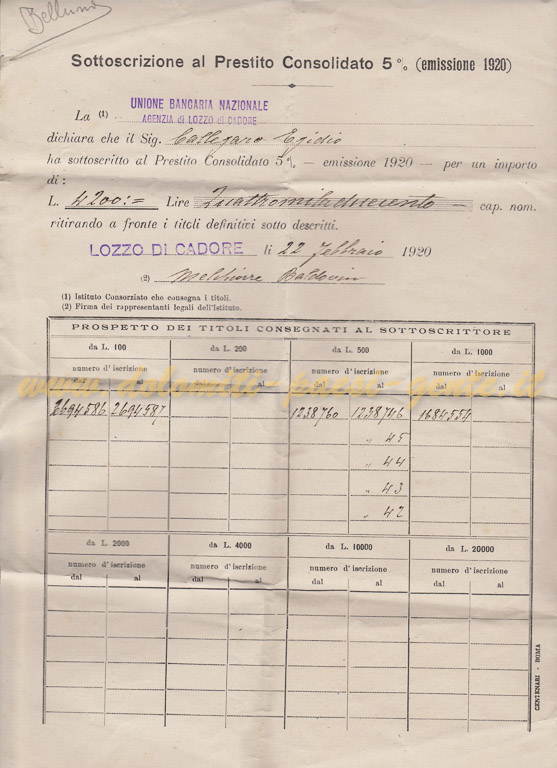 Belluno
Sottoscrizione al Prestito Consolidato 5 % (emissione 1920)
La (1) UNIONE BANCARIA NAZIONALE
AGENZIA DI LOZZO DI CADORE
dichiara che il Sig. Callegaro Egidio
ha sottoscritto al Prestito Consolidato 5 % — emissione 1920 — per un importo
di :
L. 4200:= Lire Quattromiladuecento — cap. nom.
ritirando a fronte i titoli definitivi sotto descritti.
LOZZO DI CADORE li 22 febbraio 1920
(2) Melchiorre Baldovin
(1) Istituto Consorziato che consegna i titoli.
(2) Firma dei rappresentanti legali dell'Istituto.
PROSPETTO DEI TITOLI CONSEGNATI AL SOTTOSCRITTORE
da L. 100 da L. 200 da L. 500 da L. 1000
numero d' iscrizione numero d' iscrizione numero d' iscrizione numero d' iscrizione
dal al dal al dal al dal al
www.dolomiti-press-gente.it
2694586 2694587 1238760 1238746 1684554
" 45
" 44
" 43
" 42
da L. 2000 da L. 4000 da L. 10000 da L. 20000
numero d' iscrizione numero d' iscrizione numero d' iscrizione numero d' iscrizione
dal al dal al dal al dal al
CENTENARI - ROMA